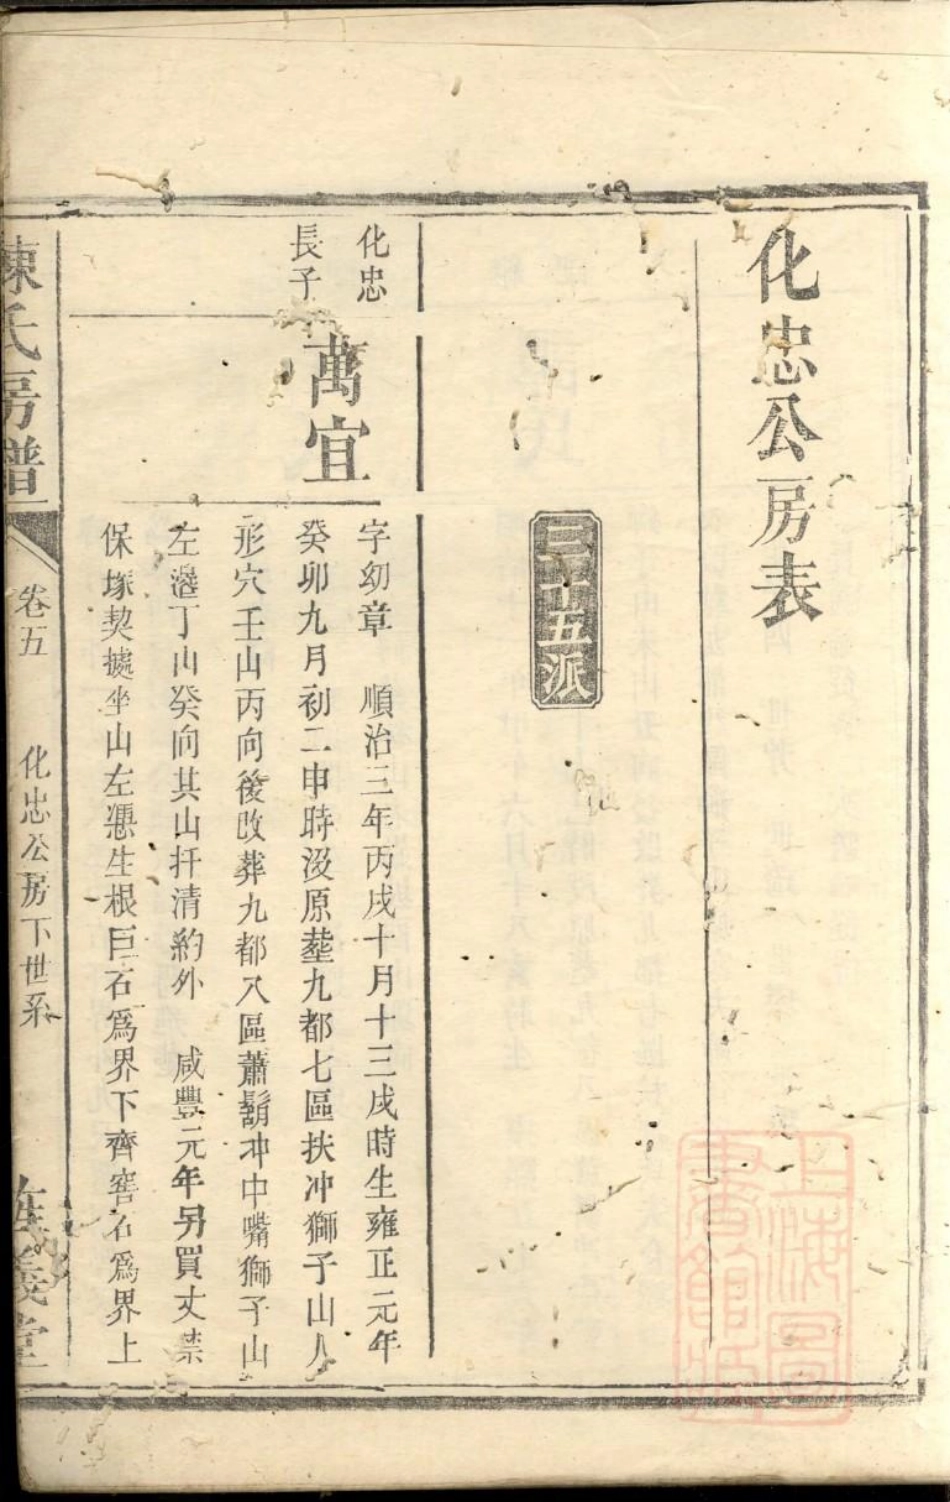 化忠公房表
三十五派
化忠
長子
萬宜
字幼章 順治三年丙戌十月十三戌時生雍正元年
癸卯九月初二申時沒原塟九都七區扶冲獅子山人
形穴壬山丙向後改葬九都八區蕭鬍冲中嘴獅子山
左邊丁山癸向其山扦清約外 咸豐元年另買丈禁
保塚契據坐山左邊生根巨石爲界下齊窖石爲界上
陳氏房譜
卷五
化忠公房下世系
義堂
上海圖
書館藏